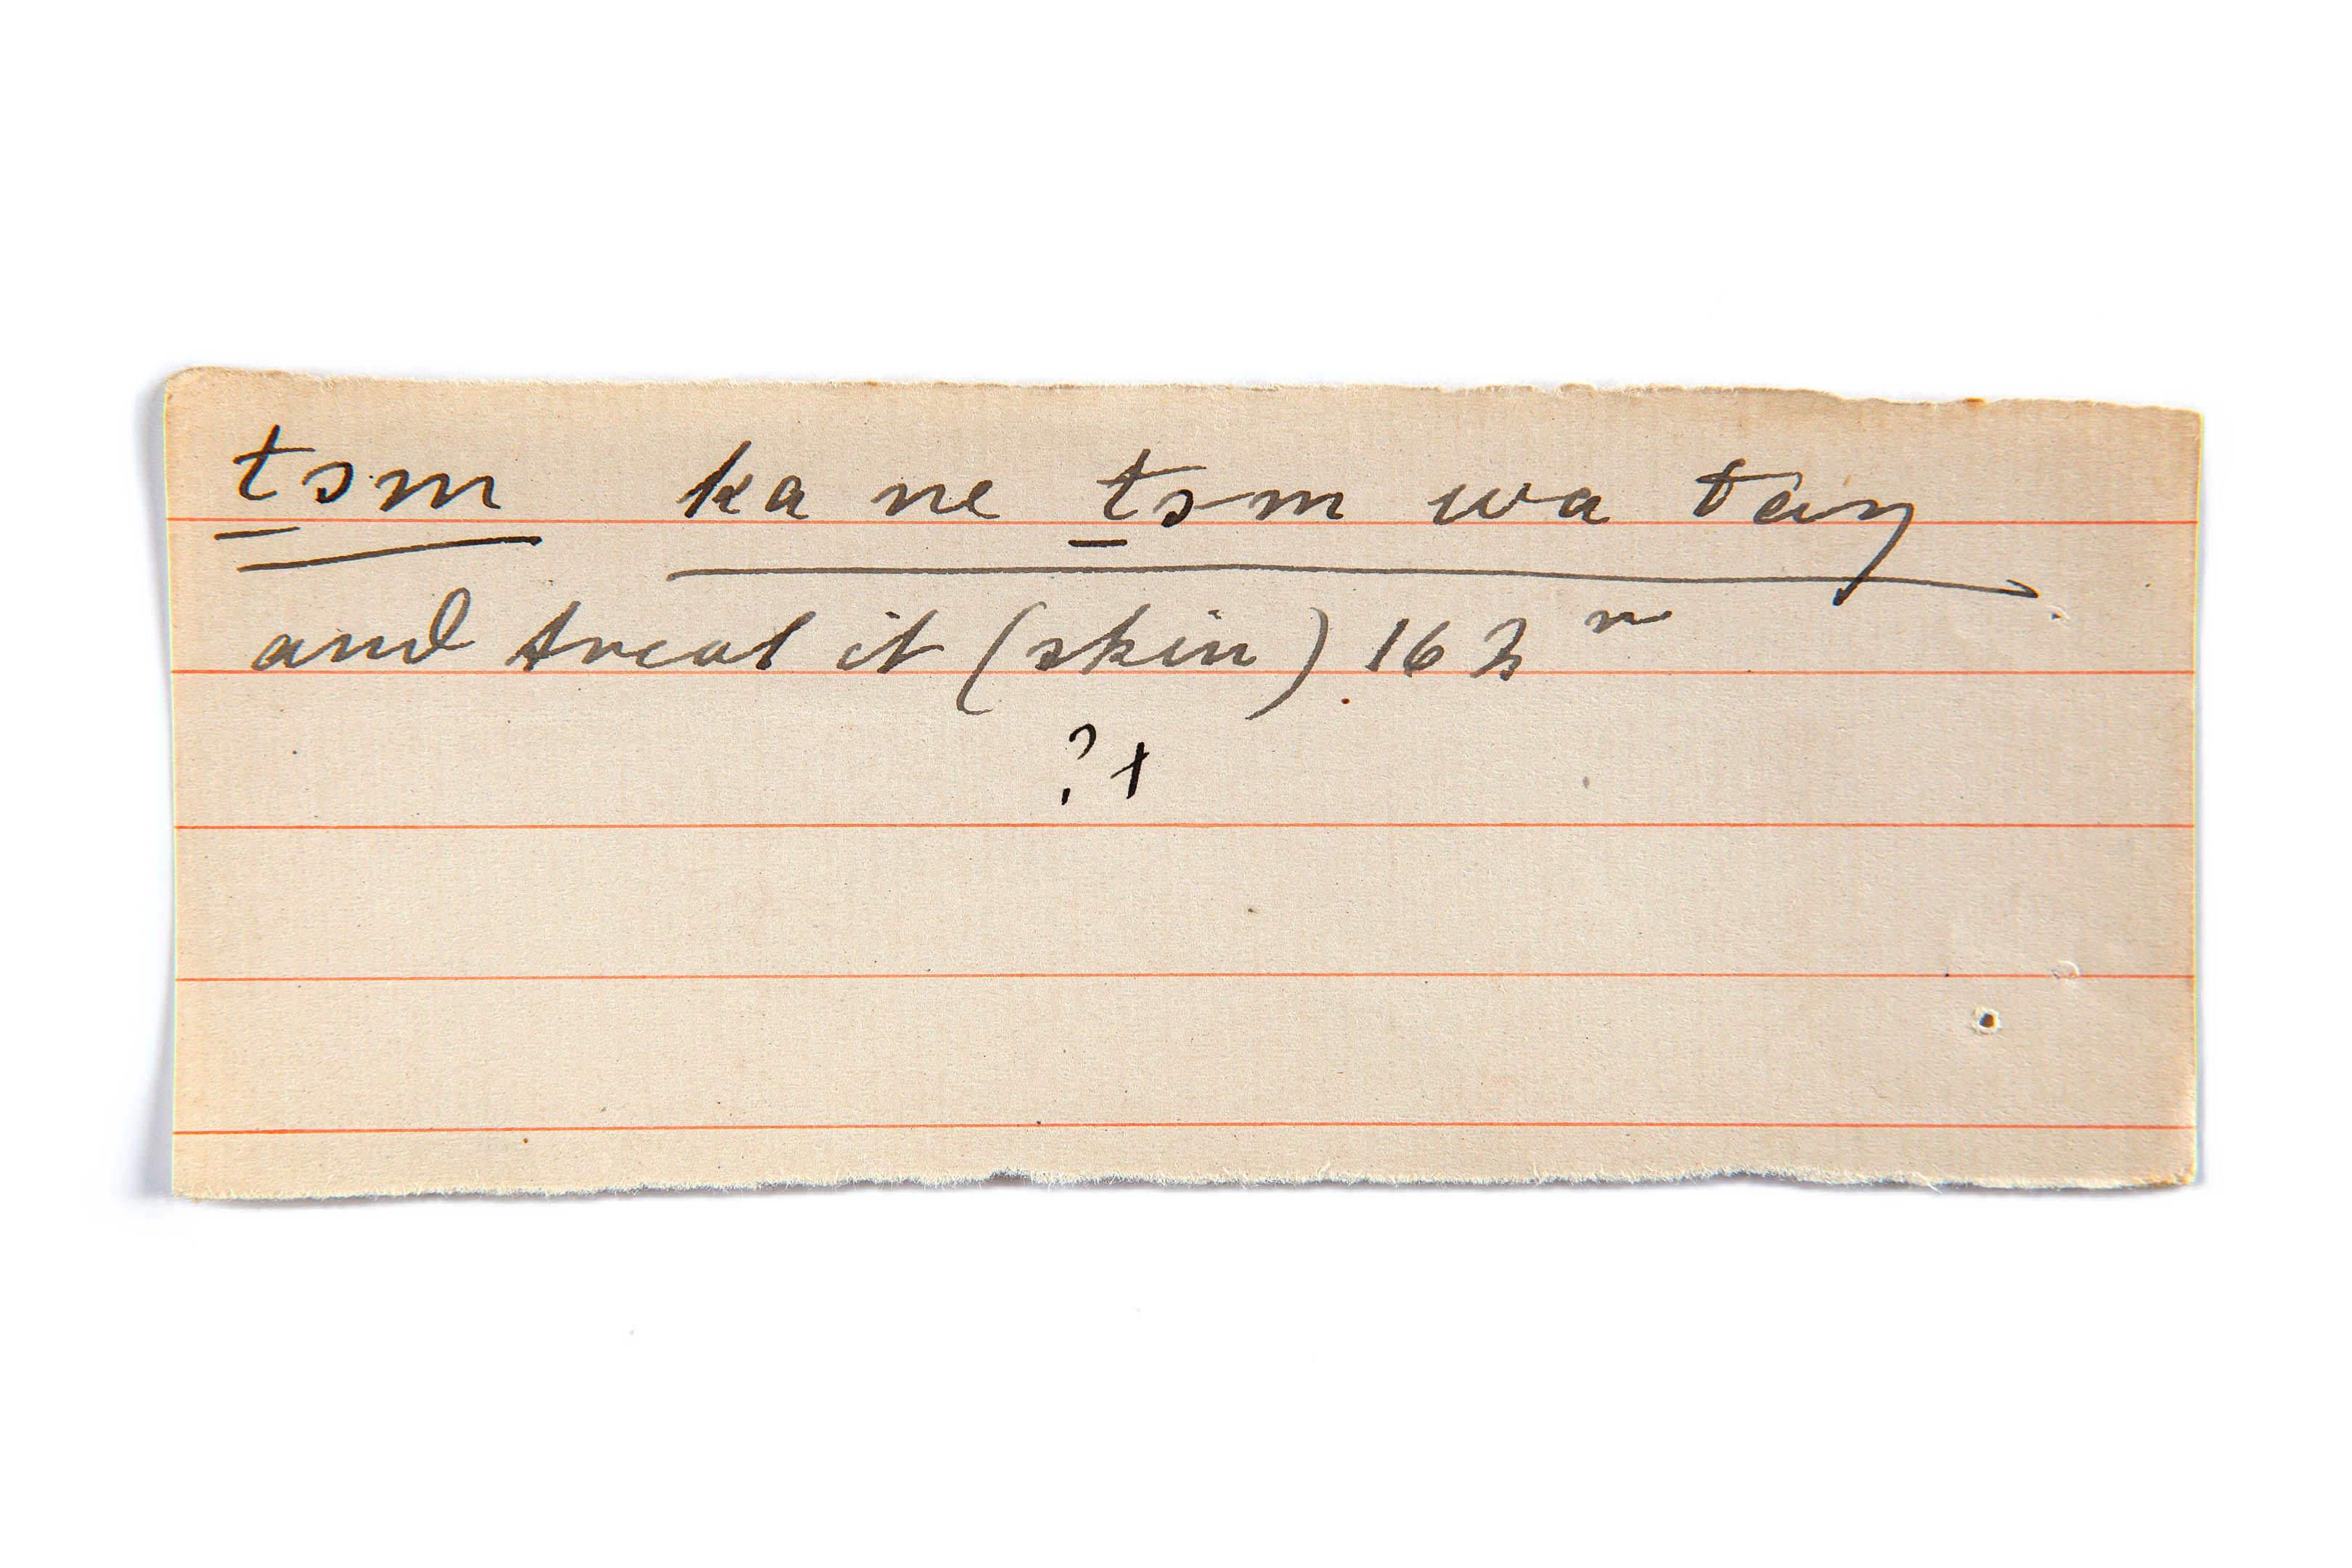 tsm ka ne tsm wa tẽiŋ
and treat it (skin) 163 n
? +